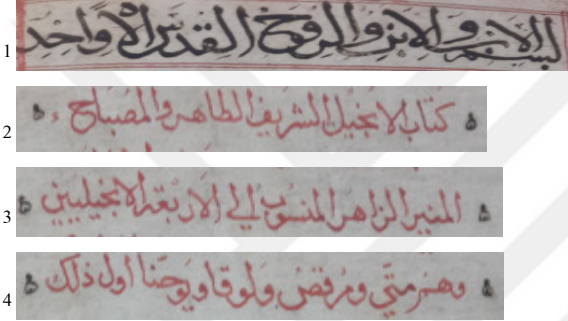 1 بسم الاب والابن والروح القدس الاه واحد
2 كتاب الانجيل الشريف الطاهر والمصباح
3 المنير الزاهر المنسوب الي الاربعة الانجيليين
4 وهم متّي ومرقص ولوقا ويوحنا اول ذلك